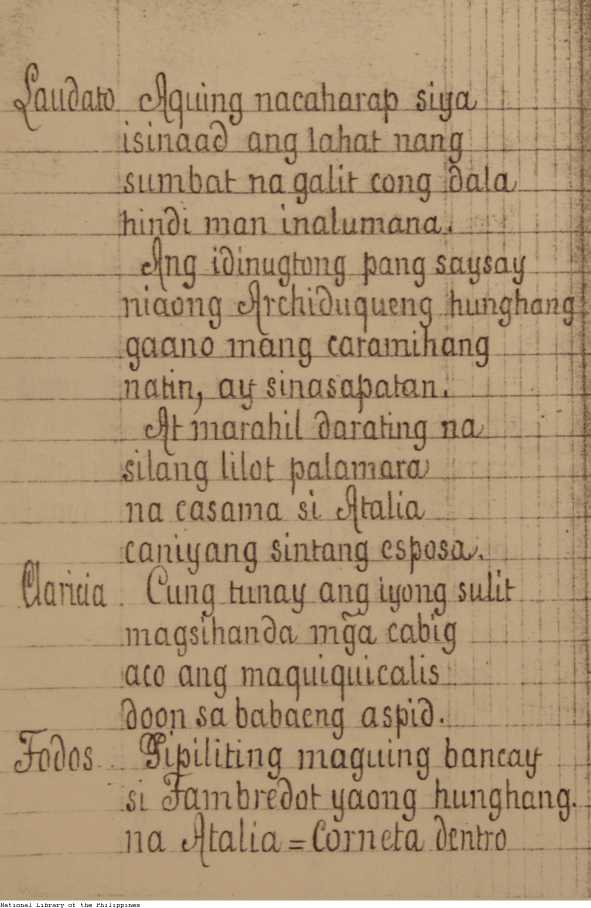 Laudato Aquing nacaharap siya
isinaad ang lahat nang
sumbat na galit cong dala
hindi man inalumana.
Ang idinugtong pang saysay
niaong Archiduqueng hunghang
gaano mang caramihang
natin, ay sinasapatan.
At marahil darating na
silang lilot palamara
na casama si Atalia
caniyang sintang esposa.
Claricia. Cung tunay ang iyong sulit
magsihanda mg̃a cabig
aco ang maquiquicalis
doon sa babaeng aspid.
Todos. Pipiliting maguing bancay
si Tambredot yaong hunghang.
na Atalia = Corneta dentro
National Library of the Philippines